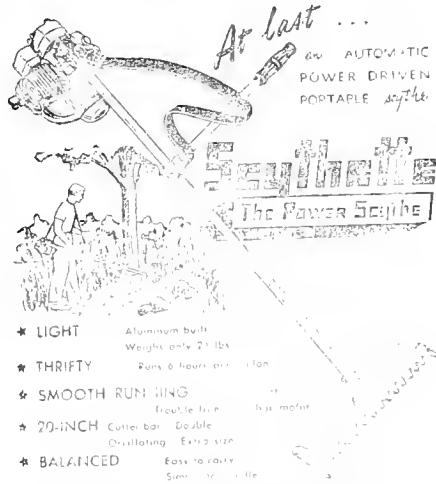 At last ...
an AUTOMATIC
POWER DRIVEN
PORTABLE scythe
Scythette
The Power Scythe
★ LIGHT Aluminum built
Weighs only 21 lbs
★ THRIFTY Runs 6 hours
★ SMOOTH RUNNING
Trouble free
★ 20-INCH Cutter bar Double
Oscillating Extra size
★ BALANCED Easy to carry